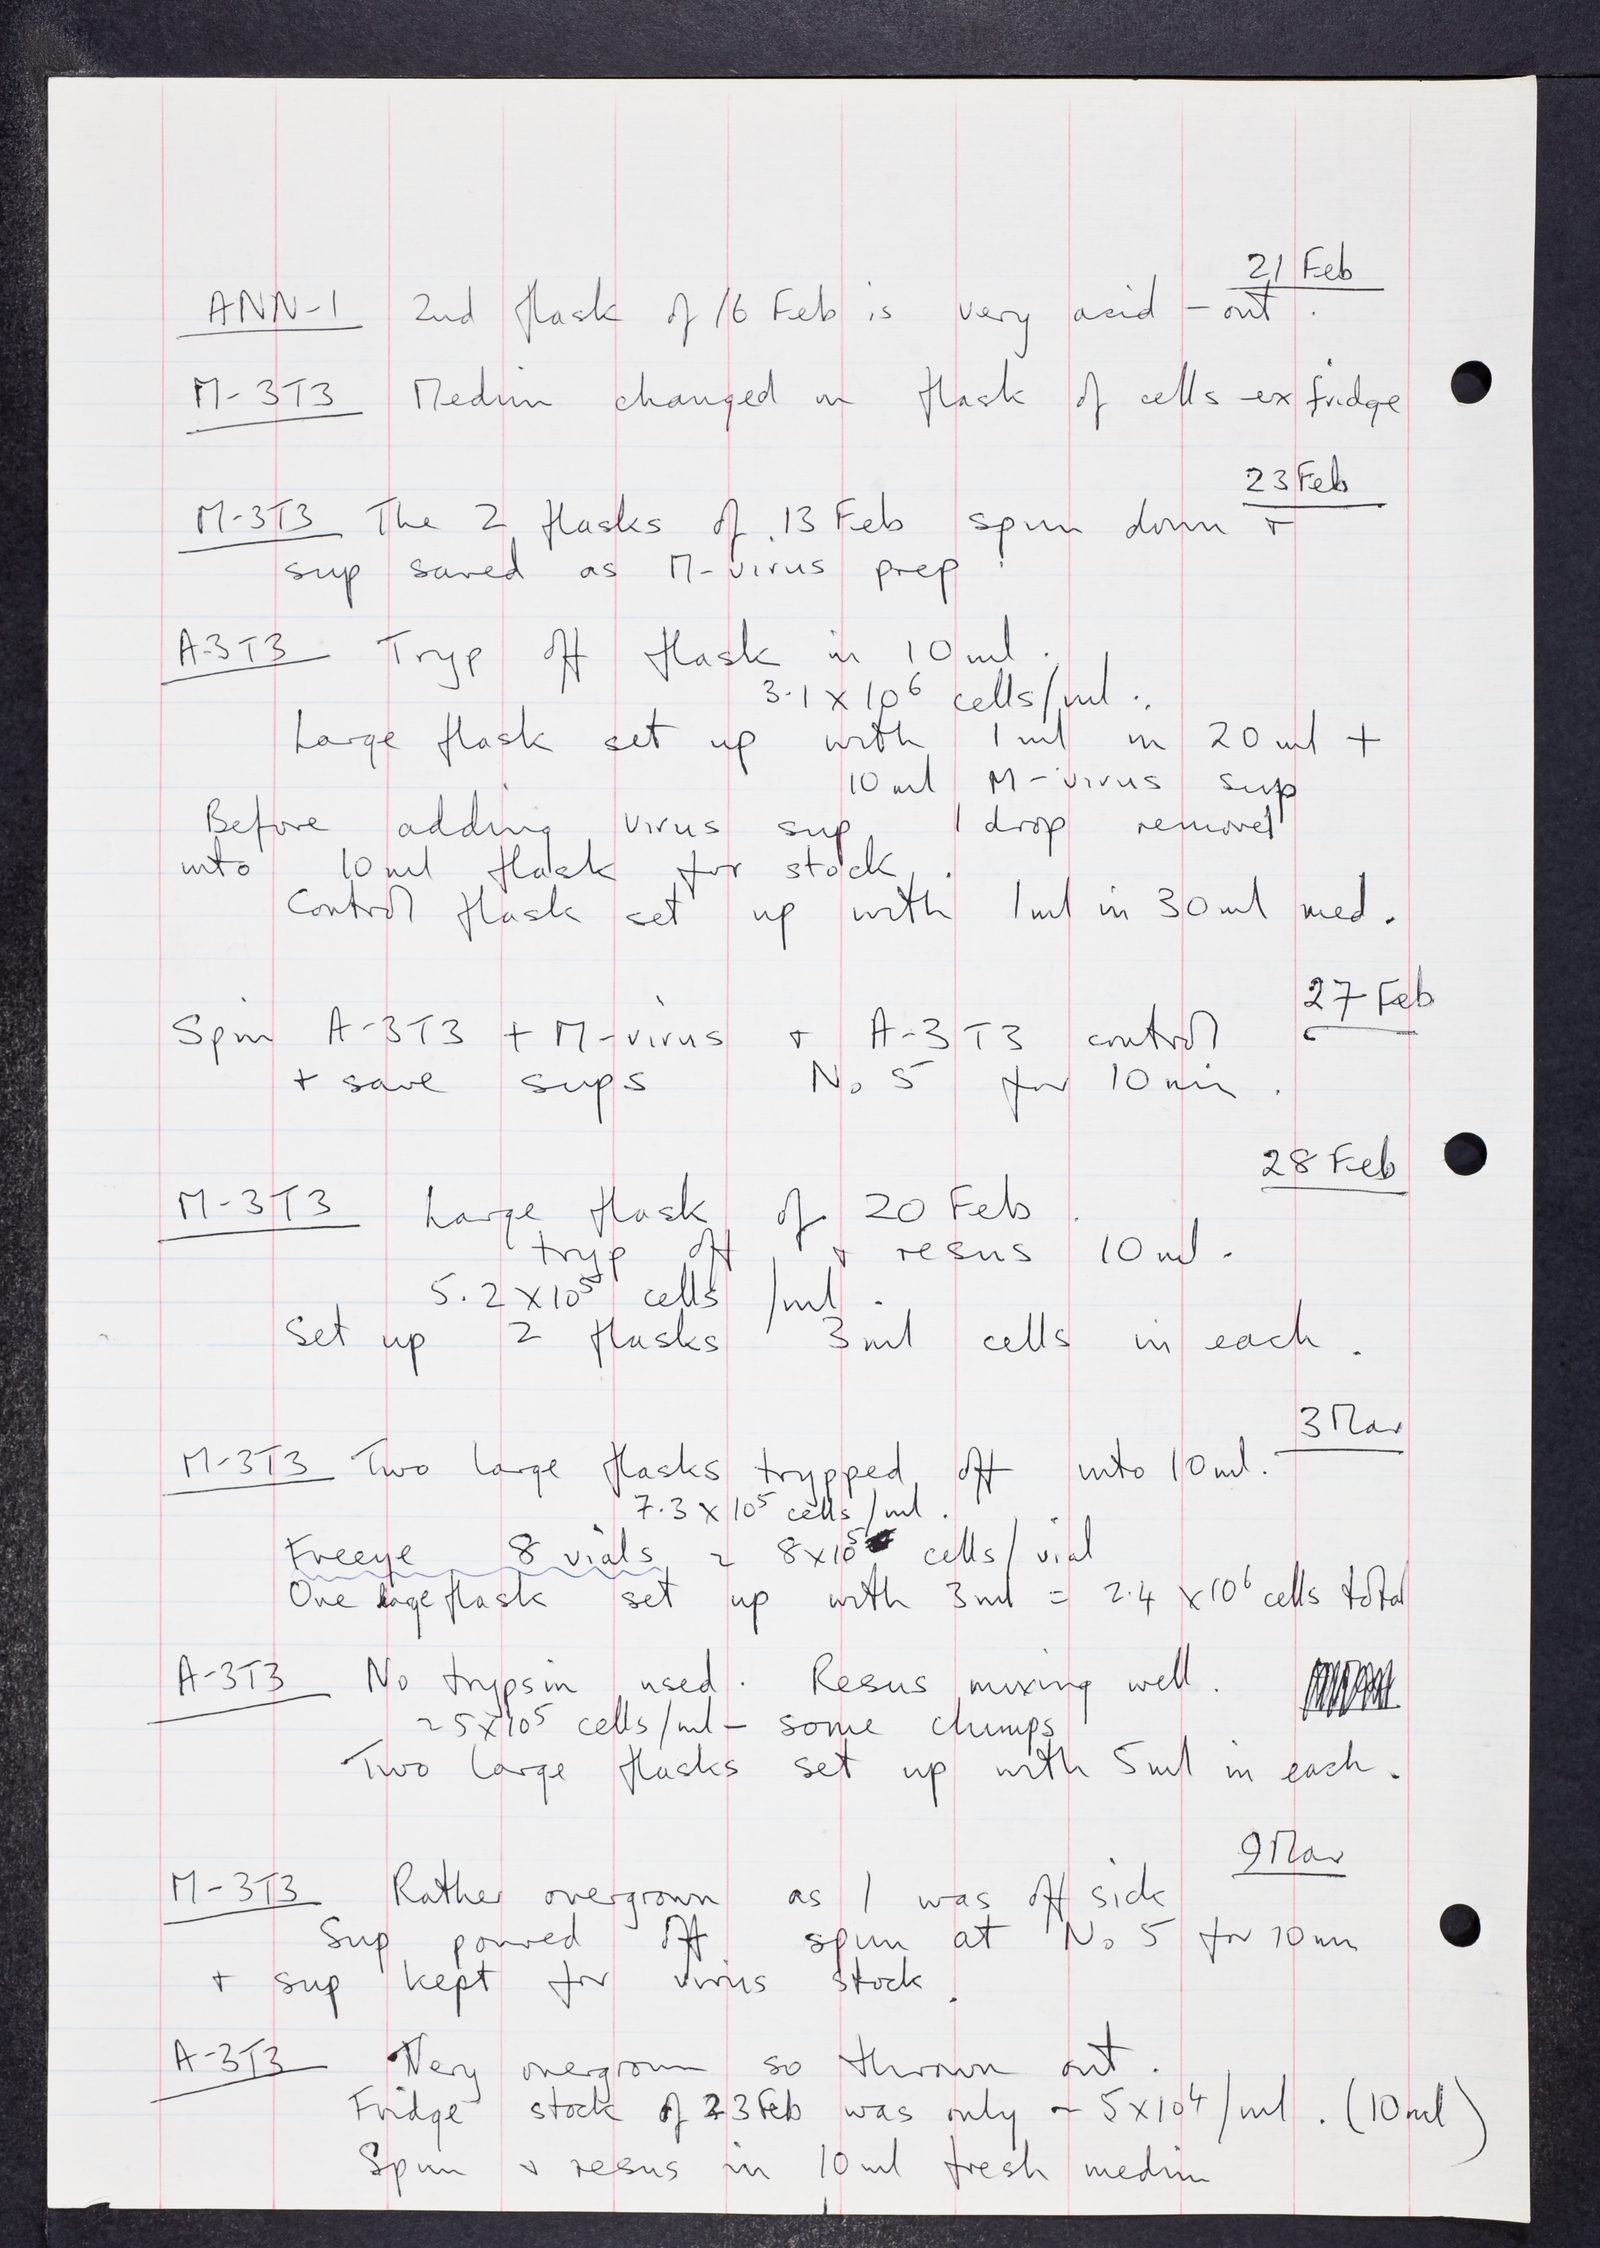 21 Feb
ANN-1 2nd flask of 16 Feb is very acid - out.
M-3T3 Medium changed in flask of cells ex fridge
23 Feb
M-3T3 The 2 flasks of 13 Feb spun down +
sup saved as M-virus prep.
A-3T3 Tryp off flask in 10 ml.
3.1 x 10⁶ cells/ml.
Large flask set up with 1 ml in 20 ml +
10 ml M-virus sup
Before adding virus sup 1 drop removed
into 10 ml flask for stock.
Control flask set up with 1 ml in 30 ml med.
27 Feb
Spin A-3T3 + M-virus + A-3T3 control
+ save sups No 5 for 10 min.
28 Feb
M-3T3 Large flask of 20 Feb.
tryp off + resus 10 ml.
5.2 x 10⁵ cells /ml.
Set up 2 flasks 3 ml cells in each.
3 Mar
M-3T3 Two large flasks trypped off into 10 ml.
7.3 x 10⁵ cells/ml.
Freeze 8 vials ~ 8 x 10⁵ cells/vial
One large flask set up with 3 ml = 2.4 x 10⁶ cells total
A-3T3 No trypsin used. Resus mixing well.
~ 5 x 10⁵ cells/ml - some clumps
Two large flasks set up with 5 ml in each.
9 Mar
M-3T3 Rather overgrown as I was off sick
Sup poured off spun at No 5 for 10 min
+ sup kept for virus stock.
A-3T3 Very overgrown so thrown out.
Fridge stock of 23 Feb was only ~ 5 x 10⁴/ml. (10 ml)
Spun + resus in 10 ml fresh medium